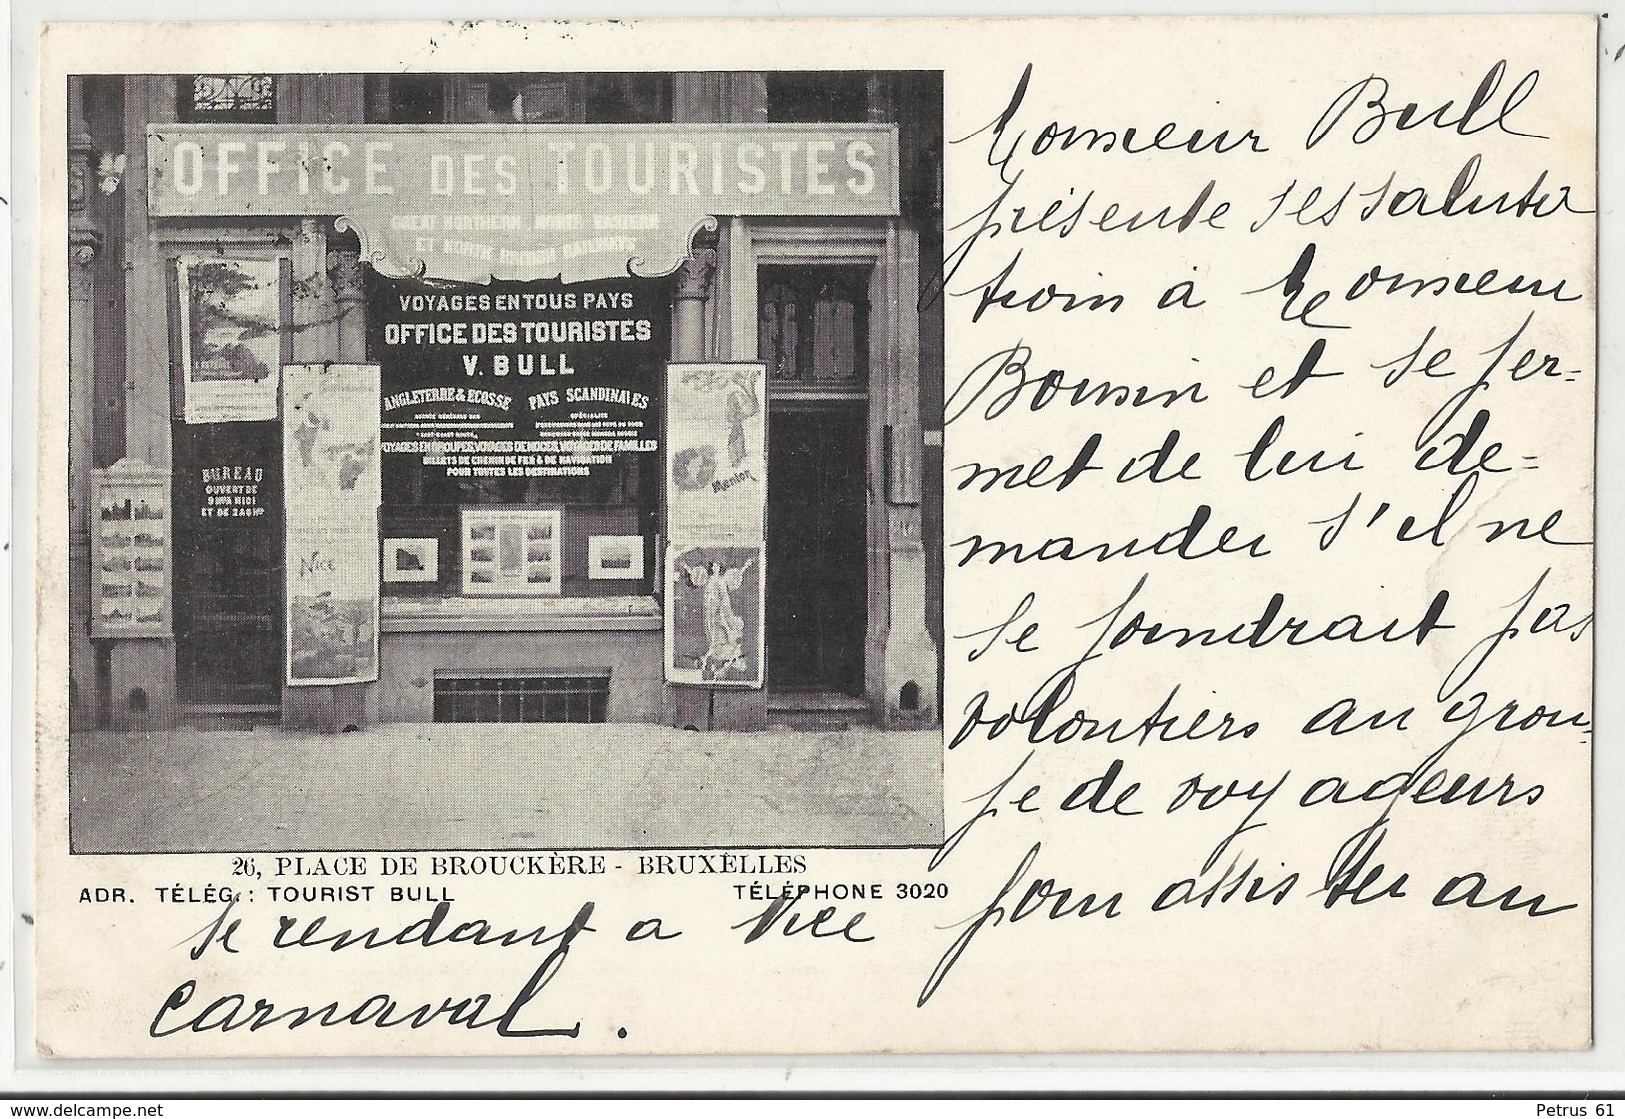 OFFICE DES TOURISTES
VOYAGES EN TOUS PAYS
OFFICE DES TOURISTES
V. BULL
ANGLETERRE & ECOSSE PAYS SCANDINAVES
VOYAGES EN GROUPES, VOYAGES DE NOCES, VOYAGES DE FAMILLES
BILLETS DE CHEMIN DE FER & DE NAVIGATION
POUR TOUTES LES DESTINATIONS
BUREAU
OUVERT DE
ET DE 2 A 6 Hrs
NICE
Menton
26, PLACE DE BROUCKÈRE - BRUXÈLLES
ADR. TÉLÉG.: TOURIST BULL TÉLÉPHONE 3020
Monsieur Bull
présente ses saluta
tion à Monsieur
Bousin et se per=
met de lui de=
mander s'il ne
se joindrait pas
volontiers au grou=
pe de voyageurs
pour assister au
se rendant a Nice
carnaval.
www.delcampe.net
Petrus 61